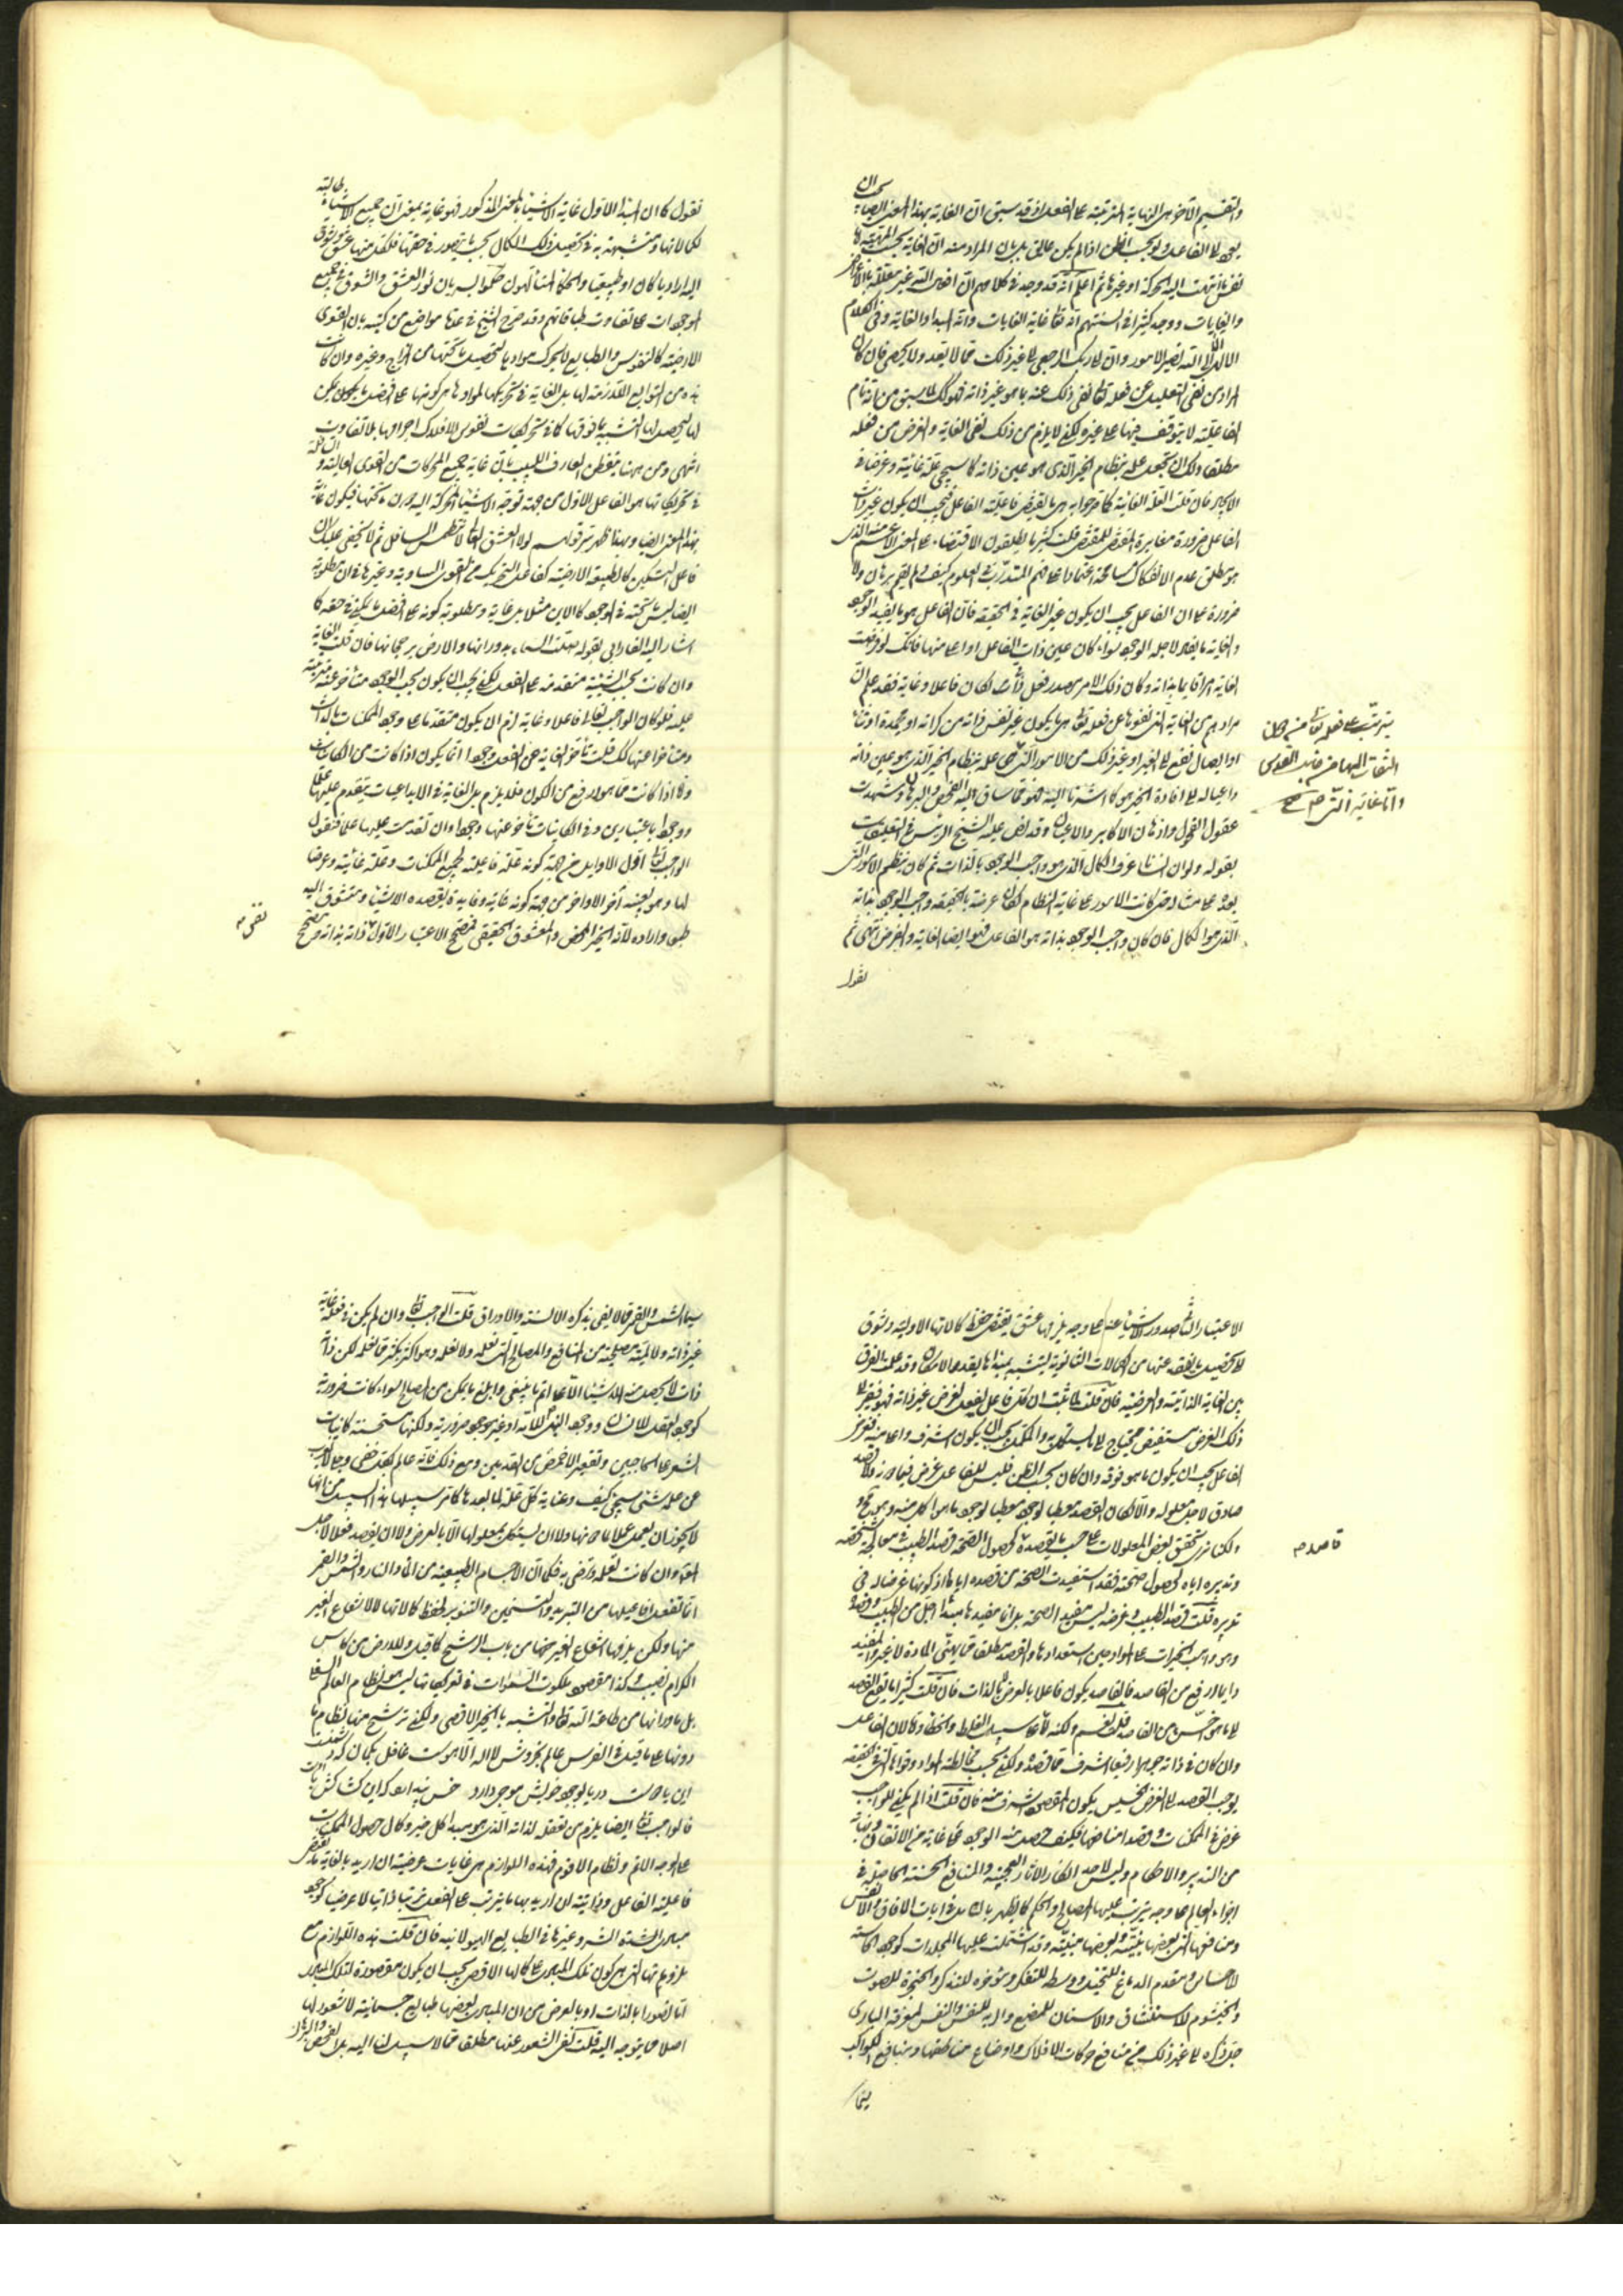 والتقسيم الآخر هي النهاية المترتبة على الفعل وقد سبق ان الغاية بهذا المعنى ايضا يجب ان
نفس ما انتهت اليه الحركة او غيرها ثم اعلم انه قد وجد في كلامهم ان افعال الله غير معللة بالاغراض
والغايات ووجد كثيرا في السنتهم انه تعالى غاية الغايات وانه المبدأ والغاية وفي الكلام
الالهي الا الى الله تصير الامور وان الى ربك الرجعى الى غير ذلك مما لا يعد ولا يحصى فان كان
المراد من نفي التعليل عن فعله تعالى نفي ذلك عنه بما هو غير ذاته فهو كذلك لما سبق من انه تام
الفاعلية لا يتوقف فيها على غيره لكن لا يلزم من ذلك نفي الغاية والغرض من فعله
مطلقا ولك ان تجعل علمه بنظام الخير الذي هو عين ذاته كما سيجيء علة غائية وغرضا في
الايجاد فان قلت العلة الغائية كما صرحوا به هي ما يقتضي فاعلية الفاعل فيجب ان يكون غير ذات
الفاعل ضرورة مغايرة المقتضي للمقتضى قلت كثيرا ما يطلقون الاقتضاء على المعنى الاعم منه الذي
هو مطلق عدم الانفكاك مسامحة اعتمادا على فهم المتدرب في العلوم كيف ولم يقم برهان ولا
ضرورة على ان الفاعل يجب ان يكون غير الغاية في الحقيقة فان الفاعل هو ما يفيد الوجود
والغاية ما يفاد لاجله الوجود سواء كان عين ذات الفاعل او اعلى منها فانك لو فرضت
الغاية امرا قائما بذاته وكان ذلك الامر مصدر فعل لكان فاعلا وغاية فقد علم ان
مرادهم من الغاية التي نفوها عن فعله تعالى هي ما يكون غير نفس ذاته من كرامة او محمدة او ثناء
او ايصال نفع الى الغير او غير ذلك من الامور التي
داعيا له الى افادة الخير هو كما اشرنا اليه فهو مما ساق اليه الفحص والبرهان وشهدت
عقول الفحول واذهان الاكابر والاعيان وقد نص عليه الشيخ الرئيس في التعليقات
بقوله ولو ان انسانا عرف الكمال الذي هو واجب الوجود بالذات ثم كان ينظم الامور التي
بعده على مثاله حتى كانت الامور على غاية النظام لكان غرضه بالحقيقة واجب الوجود بذاته
الذي هو الكمال فان كان واجب الوجود بذاته هو الفاعل فهو ايضا الغاية والغرض انتهى ثم
نقول
يترتب على فعله تعالى من دون
التفات اليها من جانب القدس
واما غاية التي هي
نقول كما ان المبدأ الاول غاية الاشياء بالمعنى المذكور فهو غاية بمعنى ان جميع الاشياء طالبة
لكمالاتها ومتشبهة به في تحصيل ذلك الكمال بحسب ما يتصور في حقها فلكل منها عشق وشوق
اليه اراديا كان او طبيعيا والحكماء المتألهون حكموا بسريان نور العشق والشوق في جميع
الموجودات على تفاوت طبقاتهم وقد صرح الشيخ في عدة مواضع من كتبه بان القوى
الارضية كالنفوس والطبائع لا يحرك موادها لتحصيل ما تحتها من المزاج وغيره وان كانت
هذه من التوابع اللازمة لها بل الغاية في تحريكها لموادها هي كونها على افضل ما يمكن
لها ليحصل لها التشبه بما فوقها كما في تحريكات نفوس الافلاك اجرامها بلا تفاوت
انتهى ومن ههنا يتفطن العارف اللبيب بان غاية جميع المحركات من القوى العالية والسافلة
في تحريكاتها هو الفاعل الاول من جهة توجه الاشياء المحركة اليه لا الى ما تحتها فيكون غاية
بهذا المعنى ايضا وبهذا ظهر سر قولهم لولا العشق العالي لانطمس السافل ثم لا يخفى عليك ان
فاعل التسكين كالطبيعة الارضية كفاعل التحريك من القوى السماوية وغيرها في ان مطلوبه
ايضا ليس ما تحته في الوجود كالاين مثلا بل غايته ومطلوبه كونه على افضل ما يمكن في حقه كما
اشار اليه الفارابي بقوله صلت السماء بدورانها والارض برجحانها فان قلت الغاية
وان كانت بحسب الشيئية متقدمة على الفعل لكن يجب ان يكون بحسب الوجود متأخرة عنه مترتبة
عليه فلو كان الواجب تعالى فاعلا وغاية لزم ان يكون متقدما على وجود الممكنات بالذات
ومتأخرا عنها كذلك قلت تأخر الغاية عن الفعل وجودا انما يكون اذا كانت من الكائنات
واما اذا كانت مما هو ارفع من الكون فلا يلزم بل الغاية في الابداعيات يتقدم عليها علما
ووجودا باعتبارين وفي الكائنات يتأخر عنها وجودا وان تقدمت عليها علما فنقول
الواجب تعالى اول الاوايل من جهة كونه علة فاعلية لجميع الممكنات وعلة غائية وغرضا
لها وهو بعينه آخر الاواخر من جهة كونه غاية وفايدة يقصده الاشياء ويتشوق اليه
طبعا وارادة لانه الخير المحض والمعشوق الحقيقي فمصحح الاعتبار الاول ذاته بذاته ومصحح
الاعتبار الثاني صدور الاشياء عنه على وجه يلزمها عشق يقتضي حفظ كمالاتها الاولية وشوق
الى تحصيل ما يفقد عنها من الكمالات الثانوية ليتشبه بمبدئها بقدر الامكان وقد علمت الفرق
بين الغاية الذاتية والعرضية فان قلت لما ثبت ان كل فاعل يفعل لغرض غير ذاته فهو فقير الى
ذلك الغرض مستفيض محتاج الى ما يستكمل به والمكمل يجب ان يكون اشرف واعلى منه فغرض
الفاعل يجب ان يكون ما هو فوقه وان كان بحسب الظن فليس للفاعل غرض فيما دونه ولا قصد
صادق لاجل معلوله والا لكان القصد معطيا لوجود
لكنا نرى تحقق بعض المعلولات على حسب ما يقصده كحصول الصحة من قصد الطبيب في معالجة شخص
وتدبيره اياه لحصول صحته فقد استفيدت الصحة من قصده اياها
تدبيره قلت قصد الطبيب وغرضه ليس مفيد الصحة بل انما مفيدها مبدأ اجل من الطبيب وقصده
وهو واهب الخيرات على المواد حين استعدادها والقصد مطلقا مما يهيئ المادة لا غير والمفيد
دايما ارفع من القاصد فالقاصد يكون فاعلا بالعرض لا بالذات فان قلت كثيرا ما يقع القصد
الى ما هو اخس من القاصد قلت نعم ولكنه على سبيل الغلط والخطأ
وان كان في ذاته جوهرا رفيعا اشرف مما قصده ولكن بحسب مخالطة المواد وقواها التي في حقه
يوجب القصد الى الغرض الخسيس يكون المقصود اشرف منه فان قلت اذا لم يكن للواجب
غرض في الممكنات وقصد الى منافعها فكيف حصل منه الوجود على غاية من الاتقان ونهاية
من التدبير والاحكام وليس لاحد انكار الآثار العجيبة والمنافع الحسنة الحاصلة في
اجزاء العالم على وجه يترتب عليها المصالح والحكم كما يظهر بالتأمل في آيات الآفاق والانفس
ومنافعها التي بعضها بينة وبعضها مبينة وقد اشتملت عليها المجلدات كوجود الحاسة
للاحساس ومقدم الدماغ للتخيل ووسطه للتفكر ومؤخره للتذكر والحنجرة للصوت
والخيشوم للاستنشاق والاسنان للمضغ والرية للتنفس والنفس لمعرفة الباري
جل ذكره الى غير ذلك من منافع حركات الافلاك واوضاع مناطقها ومنافع الكواكب
سيما
قاصده
سيما الشمس والقمر مما لا يفي بذكره الالسنة والاوراق قلت الواجب تعالى وان لم يكن في فعله غاية
غير ذاته ولا لمية مصلحة من المنافع والمصالح التي نعلمه ولا نعلمه وهو اكثر بكثير مما نعلمه لكن ذاته
ذات لا يحصل منه الاشياء الا على اتم ما ينبغي وابلغ ما يمكن من المصالح سواء كانت ضرورية
كوجود العقل للانسان ووجود النبي للامة او غير ضرورية ولكنها مستحسنة كانبات
الشعر على الحاجبين وتقعير الاخمص من القدمين ومع ذلك فانه عالم بكل خفي وجلي لا يعزب
عن علمه شيء كما سيجيء كيف وعناية كل علة لما بعدها كما مر سبيلها هذا السبيل من انها
لا يجوز ان يعمل عملا لما دونها ولا ان يستكمل بمعلولها الا بالعرض ولا ان يقصد فعلا لاجل
المعلول وان كانت تعلمه وترضى به فكما ان الاجسام الطبيعية من الماء والنار والشمس والقمر
انما تفعل افاعيلها من التبريد والتسخين والتنوير لحفظ كمالاتها لا لانتفاع الغير
منها ولكن يلزمها انتفاع الغير منها من باب الرشح كما قيل وللارض من كأس
الكرام نصيب وكذا مقصود ملكوت السموات في تحريكاتها ليس هو نظام العالم السفلي
بل ما ورائها من طاعة الله تعالى والتشبه بالخير الاقصى ولكن ترشح منها نظام ما
دونها على ما قيل في الفرس عالم بخروش لا اله الا هوست غافل بگمان که دشمنست
این یا دوست دریا بوجود خویش موجی دارد خس پندارد که این کشاکش با اوست
فالواجب تعالى ايضا يلزم من تعقله لذاته الذي هو مبدأ كل خير وكمال حصول الممكنات
على الوجه الاتم ونظام الاقوم فهذه اللوازم هي غايات عرضية ان اريد بالغاية ما يقتضي
فاعلية الفاعل وذاتية ان اريد بها ما يترتب على الفعل ترتبا ذاتيا لا عرضيا كوجود
مبادي الشر وغيرها في الطبايع الهيولانية فان قلت هذه اللوازم مع
ملزوماتها التي هي كون تلك المبادي على كمالها الاقصى يجب ان يكون مقصورة لتلك المبادي
اما تصورا بالذات او بالعرض مع ان المبادي بعضها طبايع جسمانية لا شعور لها
اصلا بما يتوجه اليه قلت نفي الشعور عنها مطلقا مما لا سبيل لنا اليه بل الفحص والبرهان